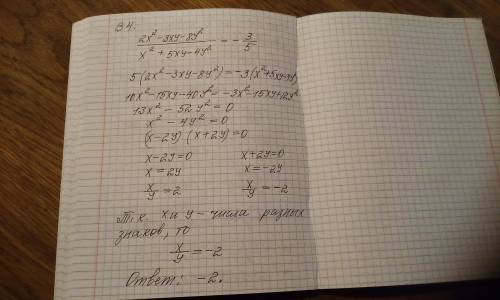 34.
2x²-3xy-8y² / x²+5xy-4y² = -3/5
5(2x²-3xy-8y²)=-3(x²+5xy-4y²)
10x²-15xy-40y²=-3x²-15xy+12y²
13x²-52y²=0
x²-4y²=0
(x-2y)(x+2y)=0
x-2y=0 x+2y=0
x=2y x=-2y
x/y=2 x/y=-2
Т.к x и y - числа разных
знаков, то
x/y=-2
Ответ: -2.